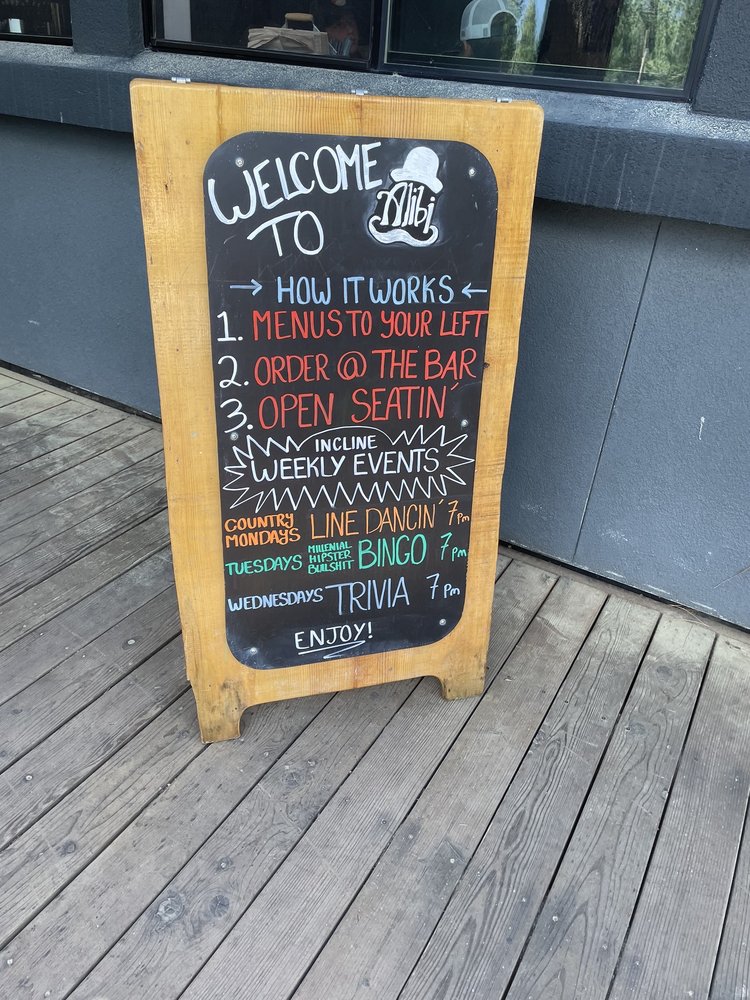 WELCOME
TO
Alibi
→ HOW IT WORKS ←
1. MENUS TO YOUR LEFT
2. ORDER @ THE BAR
3. OPEN SEATIN'
INCLINE
WEEKLY EVENTS
COUNTRY MONDAYS LINE DANCIN' 7pm
TUESDAYS MILLENIAL HIPSTER BULLSHIT BINGO 7pm
WEDNESDAYS TRIVIA 7pm
ENJOY!